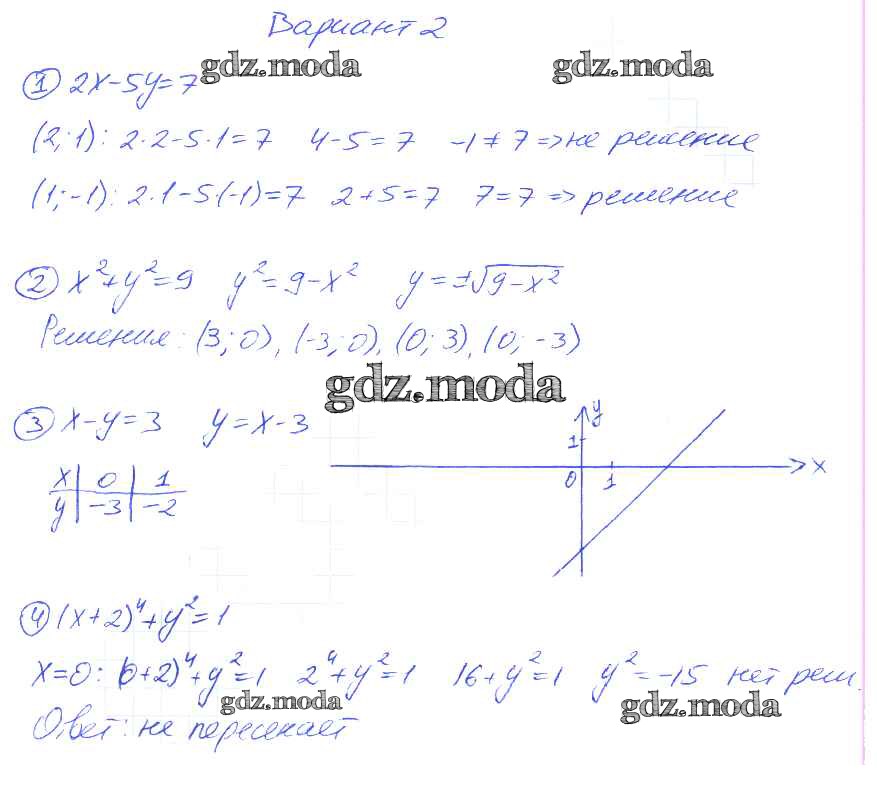 Вариант 2
gdz.moda gdz.moda
① 2x-5y=7
(2; 1): 2·2-5·1=7 4-5=7 -1≠7 => не решение
(1; -1): 2·1-5·(-1)=7 2+5=7 7=7 => решение
② x²+y²=9 y²=9-x² y=±√(9-x²)
Решения: (3; 0), (-3; 0), (0; 3), (0; -3)
gdz.moda
③ x-y=3 y=x-3
y
1
0 1 x
x | 0 | 1
y | -3 | -2
④ (x+2)⁴+y²=1
x=0: (0+2)⁴+y²=1 2⁴+y²=1 16+y²=1 y²=-15 нет реш.
gdz.moda gdz.moda
Ответ: не пересекает